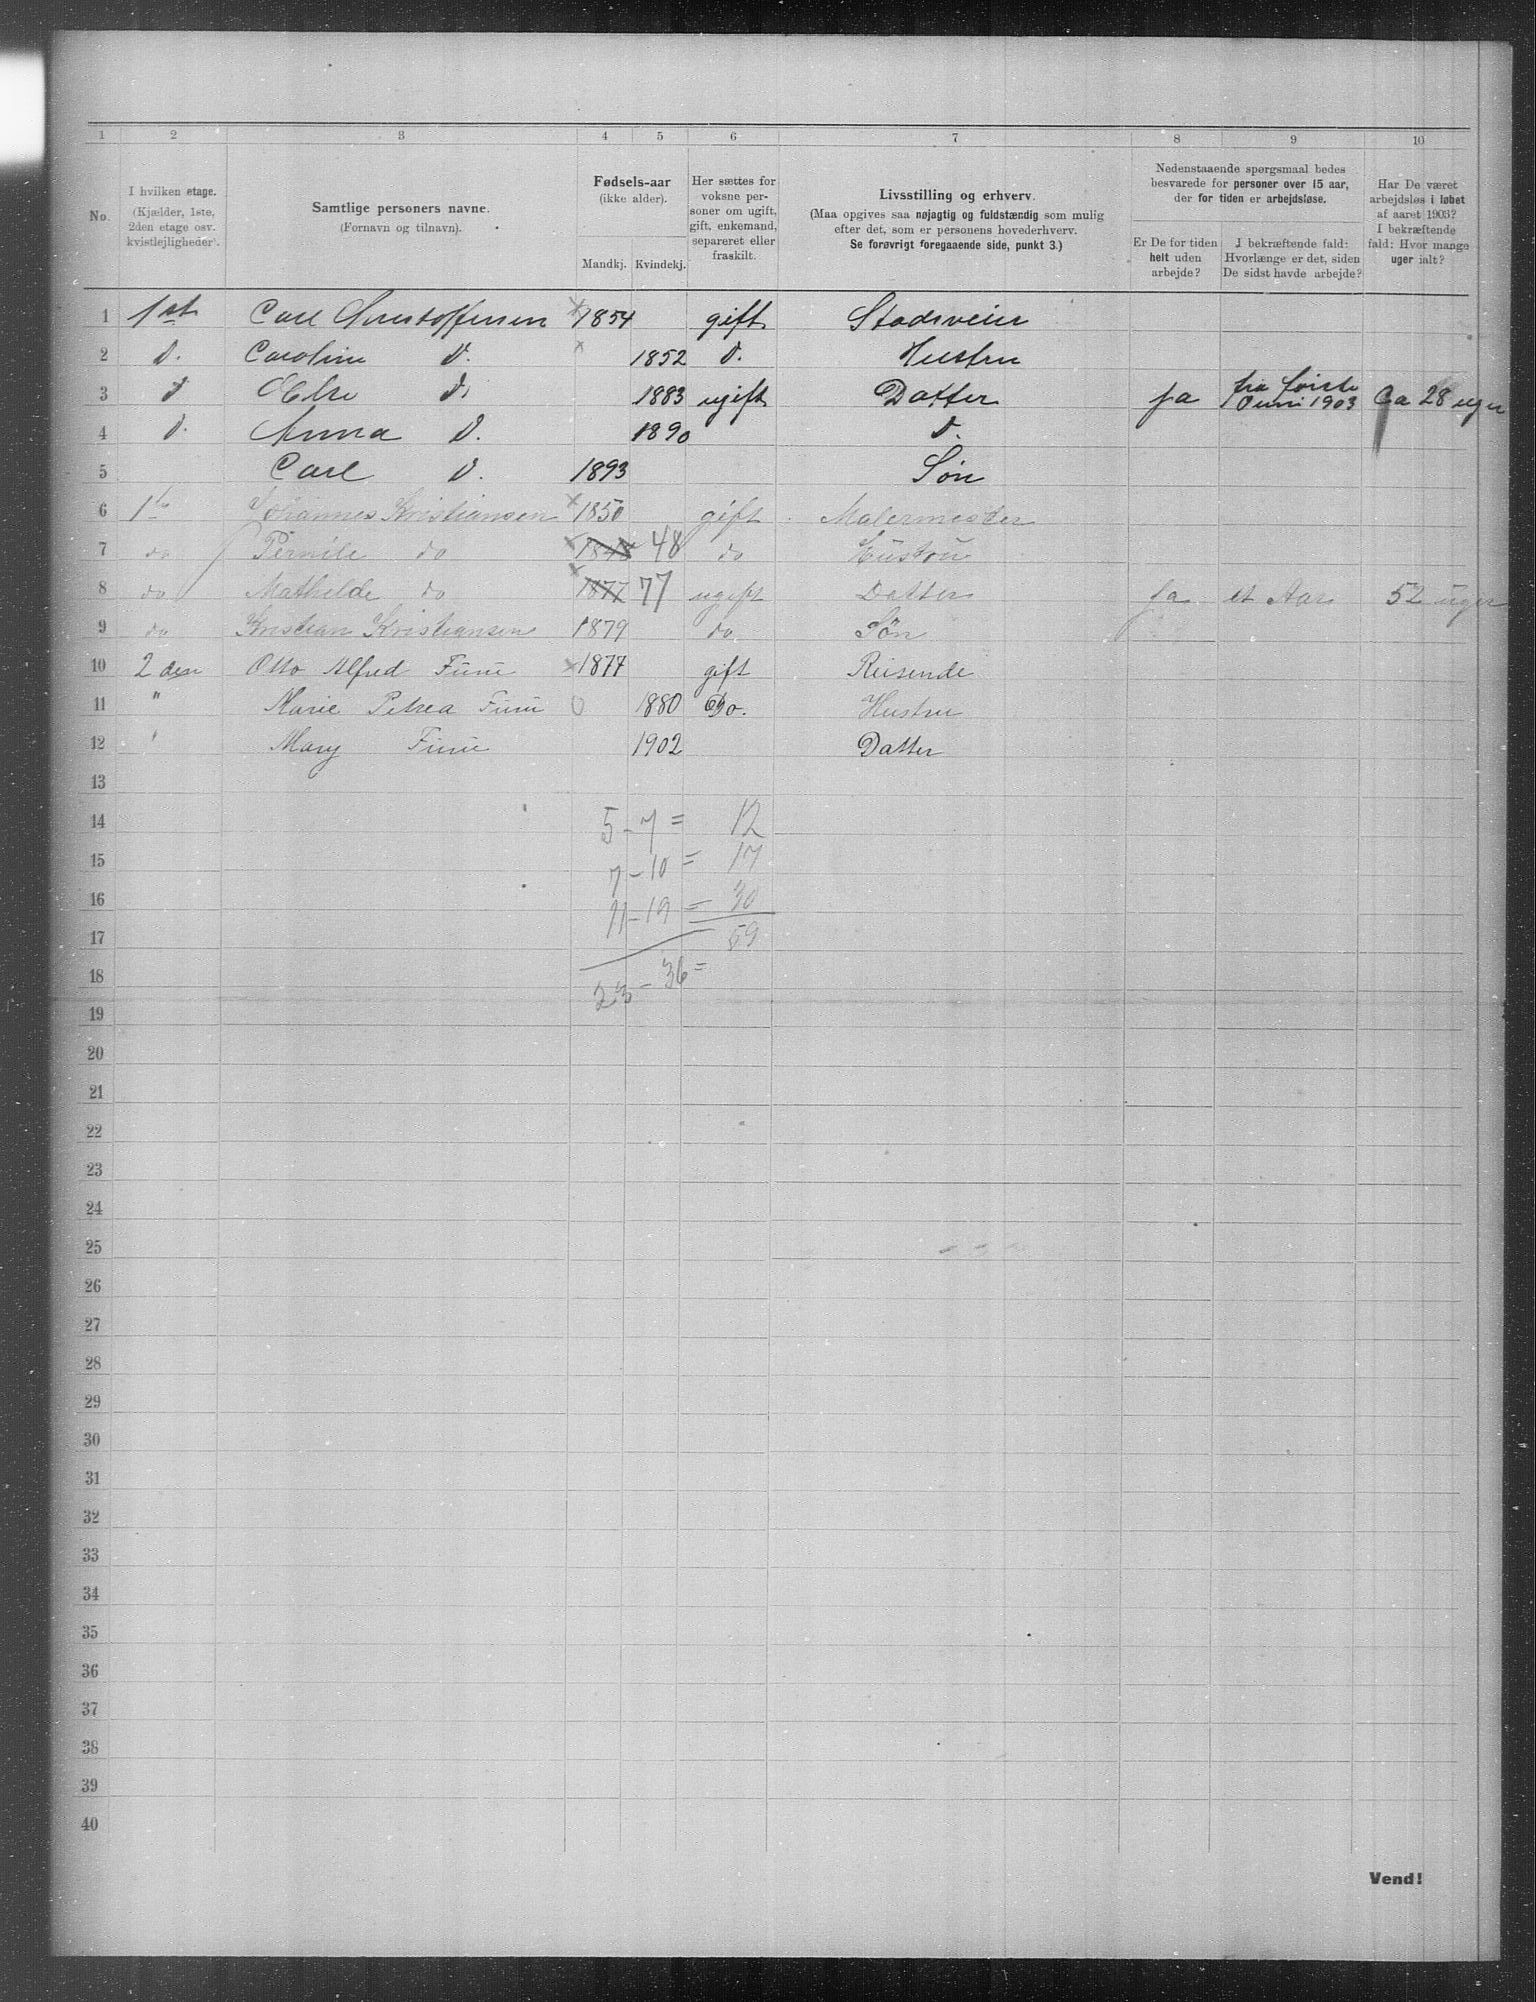 1 2 3 4 5 6 7 8 9 10
No.
I hvilken etage.
(Kjælder, 1ste,
2den etage osv.
kvistlejligheder).
Samtlige personers navne.
(Fornavn og tilnavn).
Fødsels-aar
(ikke alder).
Mandkj. Kvindekj.
Her sættes for
voksne per-
soner om ugift,
gift, enkemand,
separeret eller
fraskilt.
Livsstilling og erhverv.
(Maa opgives saa nøjagtig og fuldstændig som mulig
efter det, som er personens hovederhverv.
Se forøvrigt foregaaende side, punkt 3.)
Nedenstaaende spørgsmaal bedes
besvarede for personer over 15 aar,
der for tiden er arbejdsløse.
Er De for tiden
helt uden
arbejde?
I bekræftende fald:
Hvorlænge er det, siden
De sidst havde arbejde?
Har De været
arbejdsløs i løbet
af aaret 1903?
I bekræftende
fald: Hvor mange
uger ialt?
1 1st Carl Christoffersen x 1854 gift Stadsveier
2 d. Caroline d. x 1852 d. Hustru
3 d Else d. 1883 ugift Datter ja fra første Juni 1903 Ca 28 uger
4 d. Anna d. 1890 d.
5 Carl d. 1893 Søn
6 1ste Johannes Kristiansen x 1850 gift Malermester
7 do Pernile do x 1848 48 do Hustru
8 do Mathilde do x 1877 77 ugift Datter ja et Aar 52 uger
9 do Kristian Kristiansen 1879 do Søn
10 2den Otto Alfred Furu x 1877 gift Reisende
11 " Marie Petrea Furu 0 1880 Do. Hustru
12 " Mary Furu 1902 Datter
13
14 5 - 7 = 12
15 7 - 10 = 17
16 11 - 19 = 30
17 59
18 23 - 36 =
19
20
21
22
23
24
25
26
27
28
29
30
31
32
33
34
35
36
37
38
39
40
Vend!